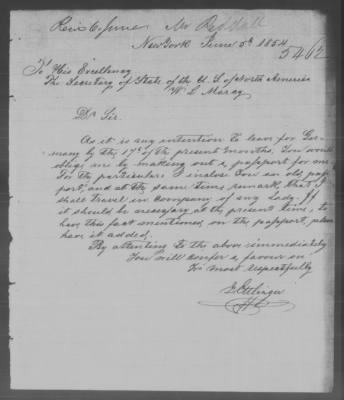 Rec'd 6 June Mr Reddall
New York June 5th 1854
5462
To His Excellency
The Secretary of State of the U. S. of North America
W L Marcy
Dr Sir.
As it is my intention to leave for Ger-
many by the 17th of the present months, You would
oblige me by making out a passport for me
To the particulars I inclose You an old pass
port, and at the same time remark, that I
shall travel in Company of my Lady. If
it should be necessary at the present time, to
have this fact mentioned on the passport, please
have it added.
By attenting to the above immediately
You will confer a favour on
Yrs most respectfully
Ettlinger